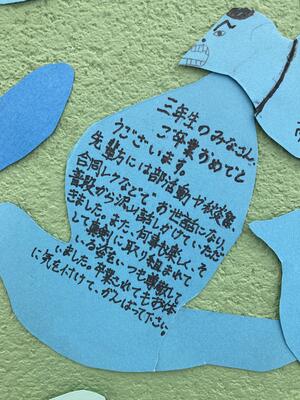 三年生のみなさん、
ご卒業おめでと
うございます。
先輩方には部活動や秋華祭、
合同レクなどで、お世話になり、
普段から沢山話しかけていただ
きました。また、何事も楽しく、そ
して真剣に取り組まれて
いる姿をいつも尊敬して
いました。卒業されてもお体
に気を付けて、がんばって下さい。